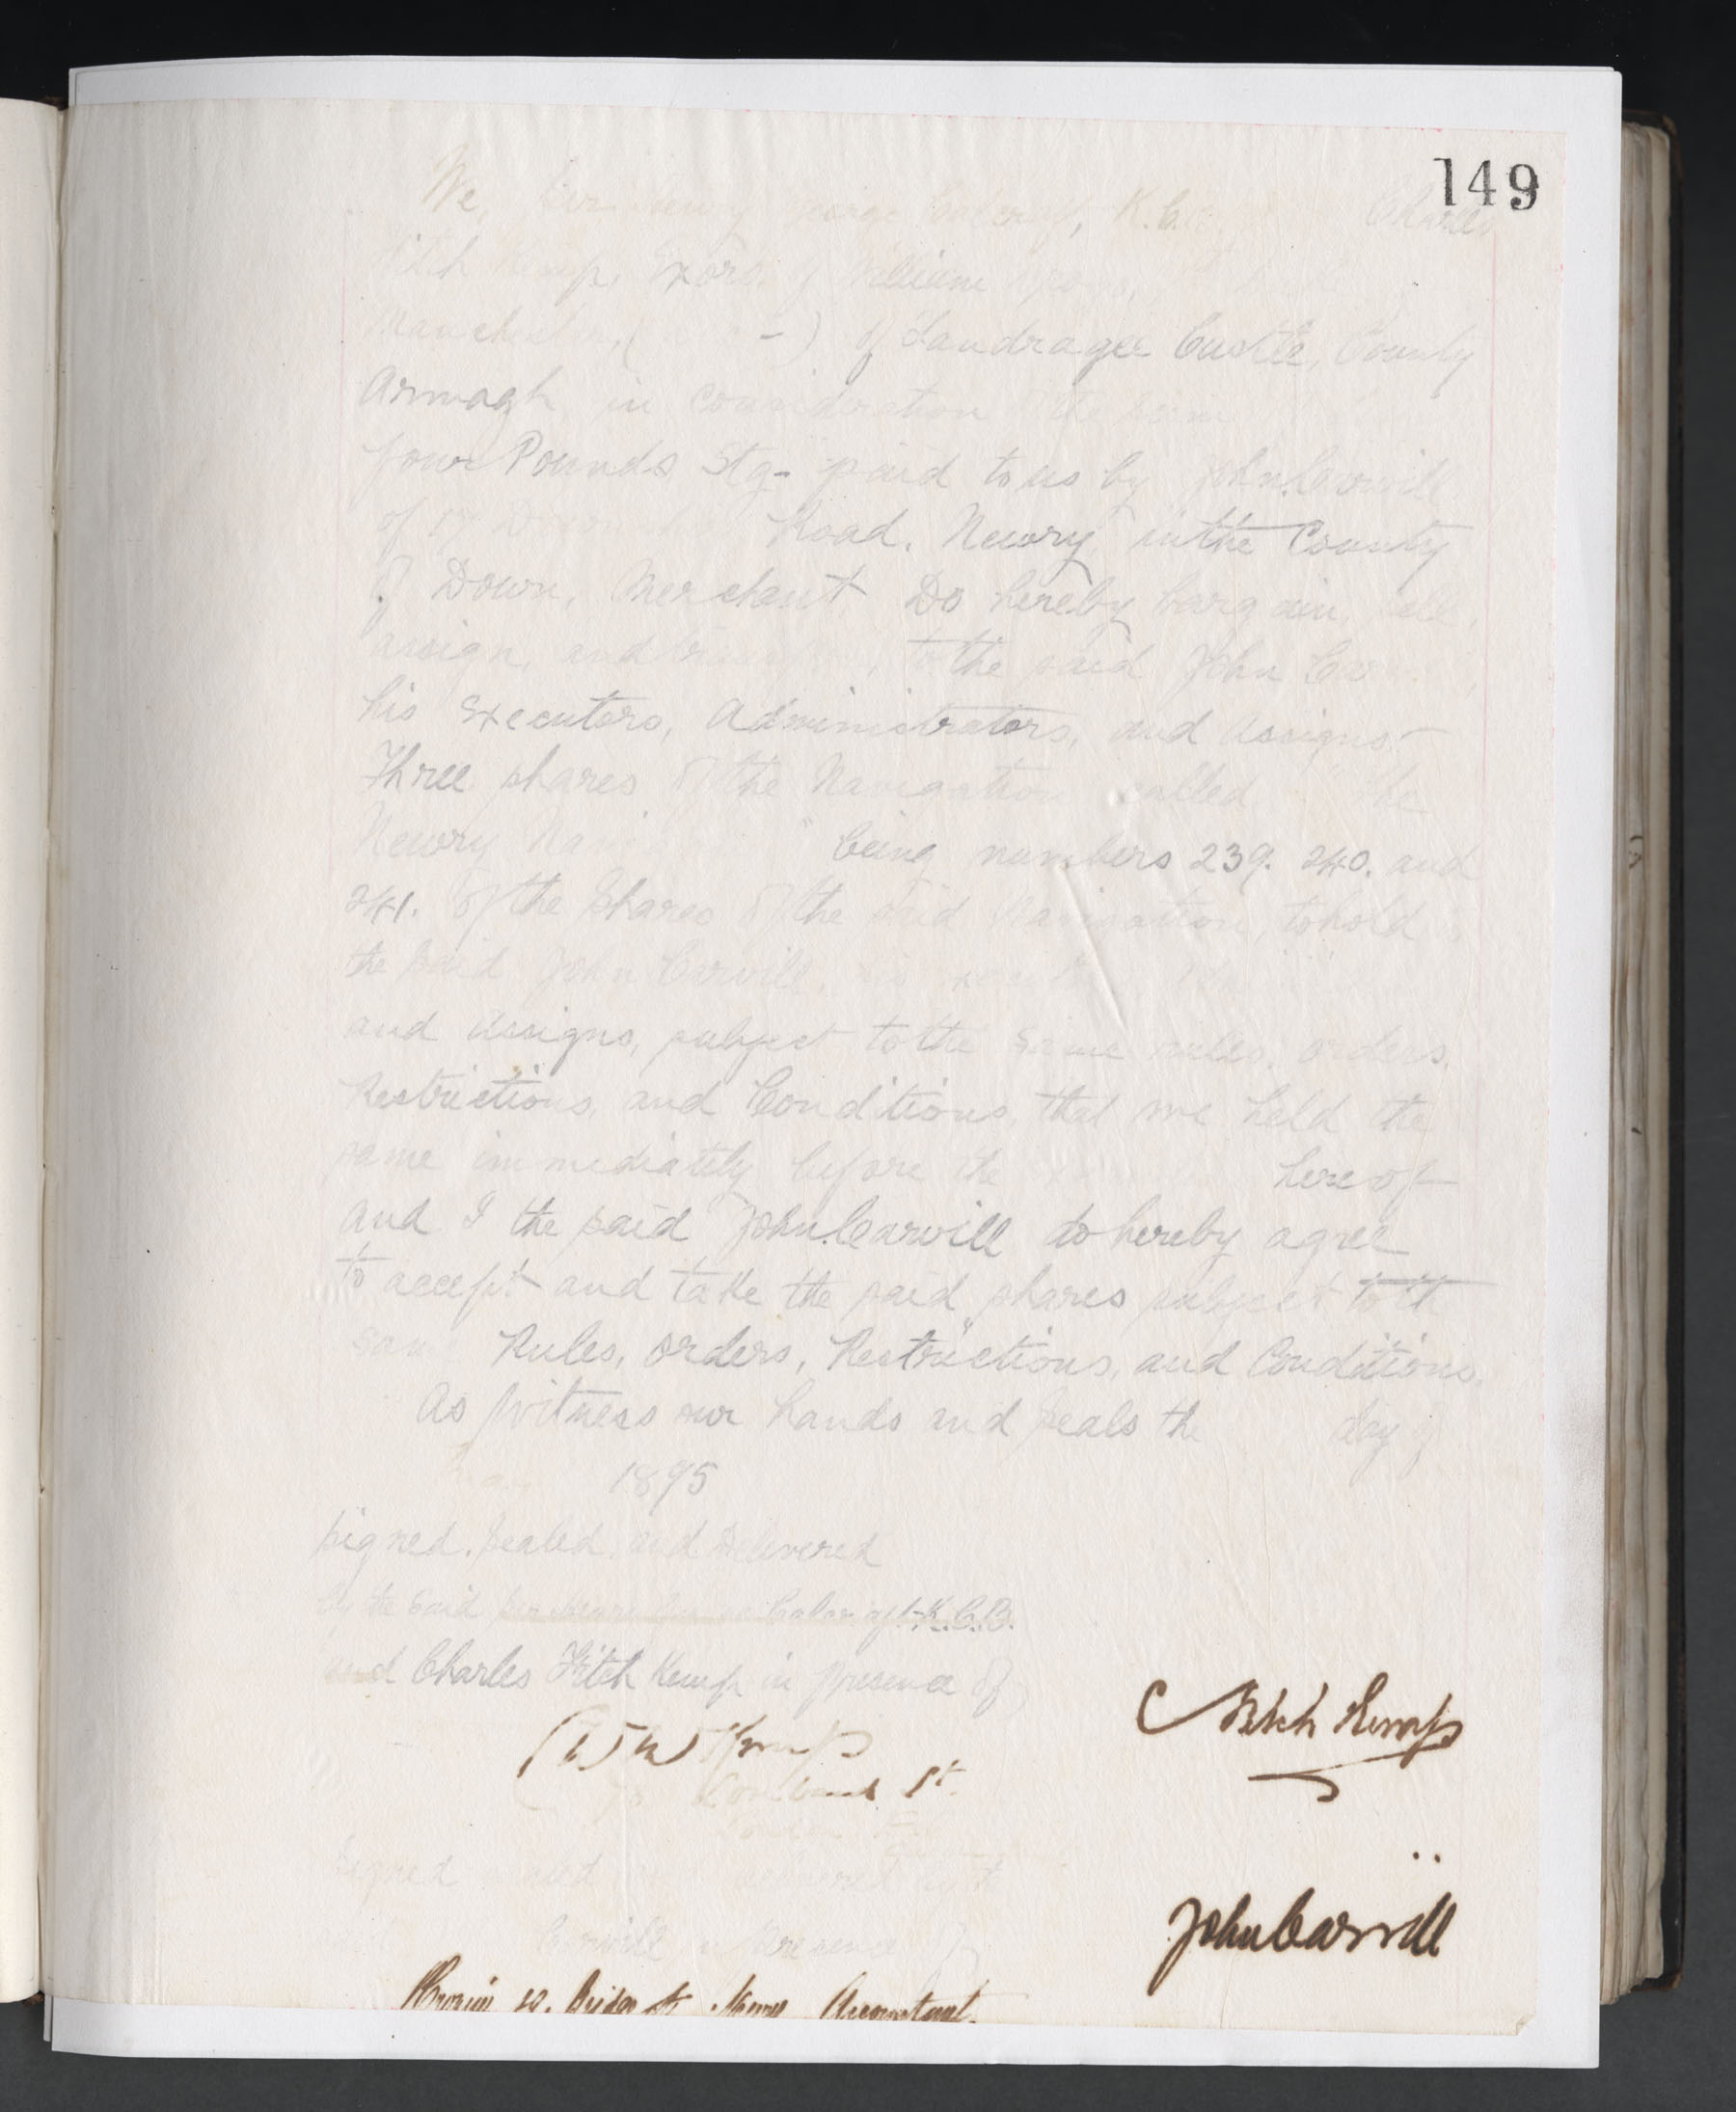 149
We, Sir Henry George Calcraft, K.C.B. Charles
Fitch Kemp, Exors. of William Drogo,
Manchester, ( ) of Tandragee Castle, County
Armagh in Consideration of the sum
four Pounds Stg- paid to us by John Carvill
of 17 Road. Newry, in the County
of Down, Merchant Do hereby bargain, sell,
assign, and transfer, to the said John Carvill,
his Executors, Administrators, and Assigns-
Three shares of the Navigation called "The
Newry Navigation" being numbers 239. 240. and
241. of the Shares of the said Navigation, to hold
the said John Carvill,
and Assigns, subject to the same rules, orders,
Restrictions, and Conditions, that we held the
same immediately before the hereof-
and I the said John Carvill do hereby agree
to accept and take the said shares subject to the
same Rules, Orders, Restrictions, and Conditions.
As Witness our hands and seals the day of
1895
Signed, Sealed, and Delivered
by the said Sir Henry George Calcraft K.C.B.
and Charles Fitch Kemp in presence of
Kemp
C Fitch Kemp
Lombard St.
London
Signed sealed and delivered by the
Carvill in presence of
John Carvill
Newry Accountant.